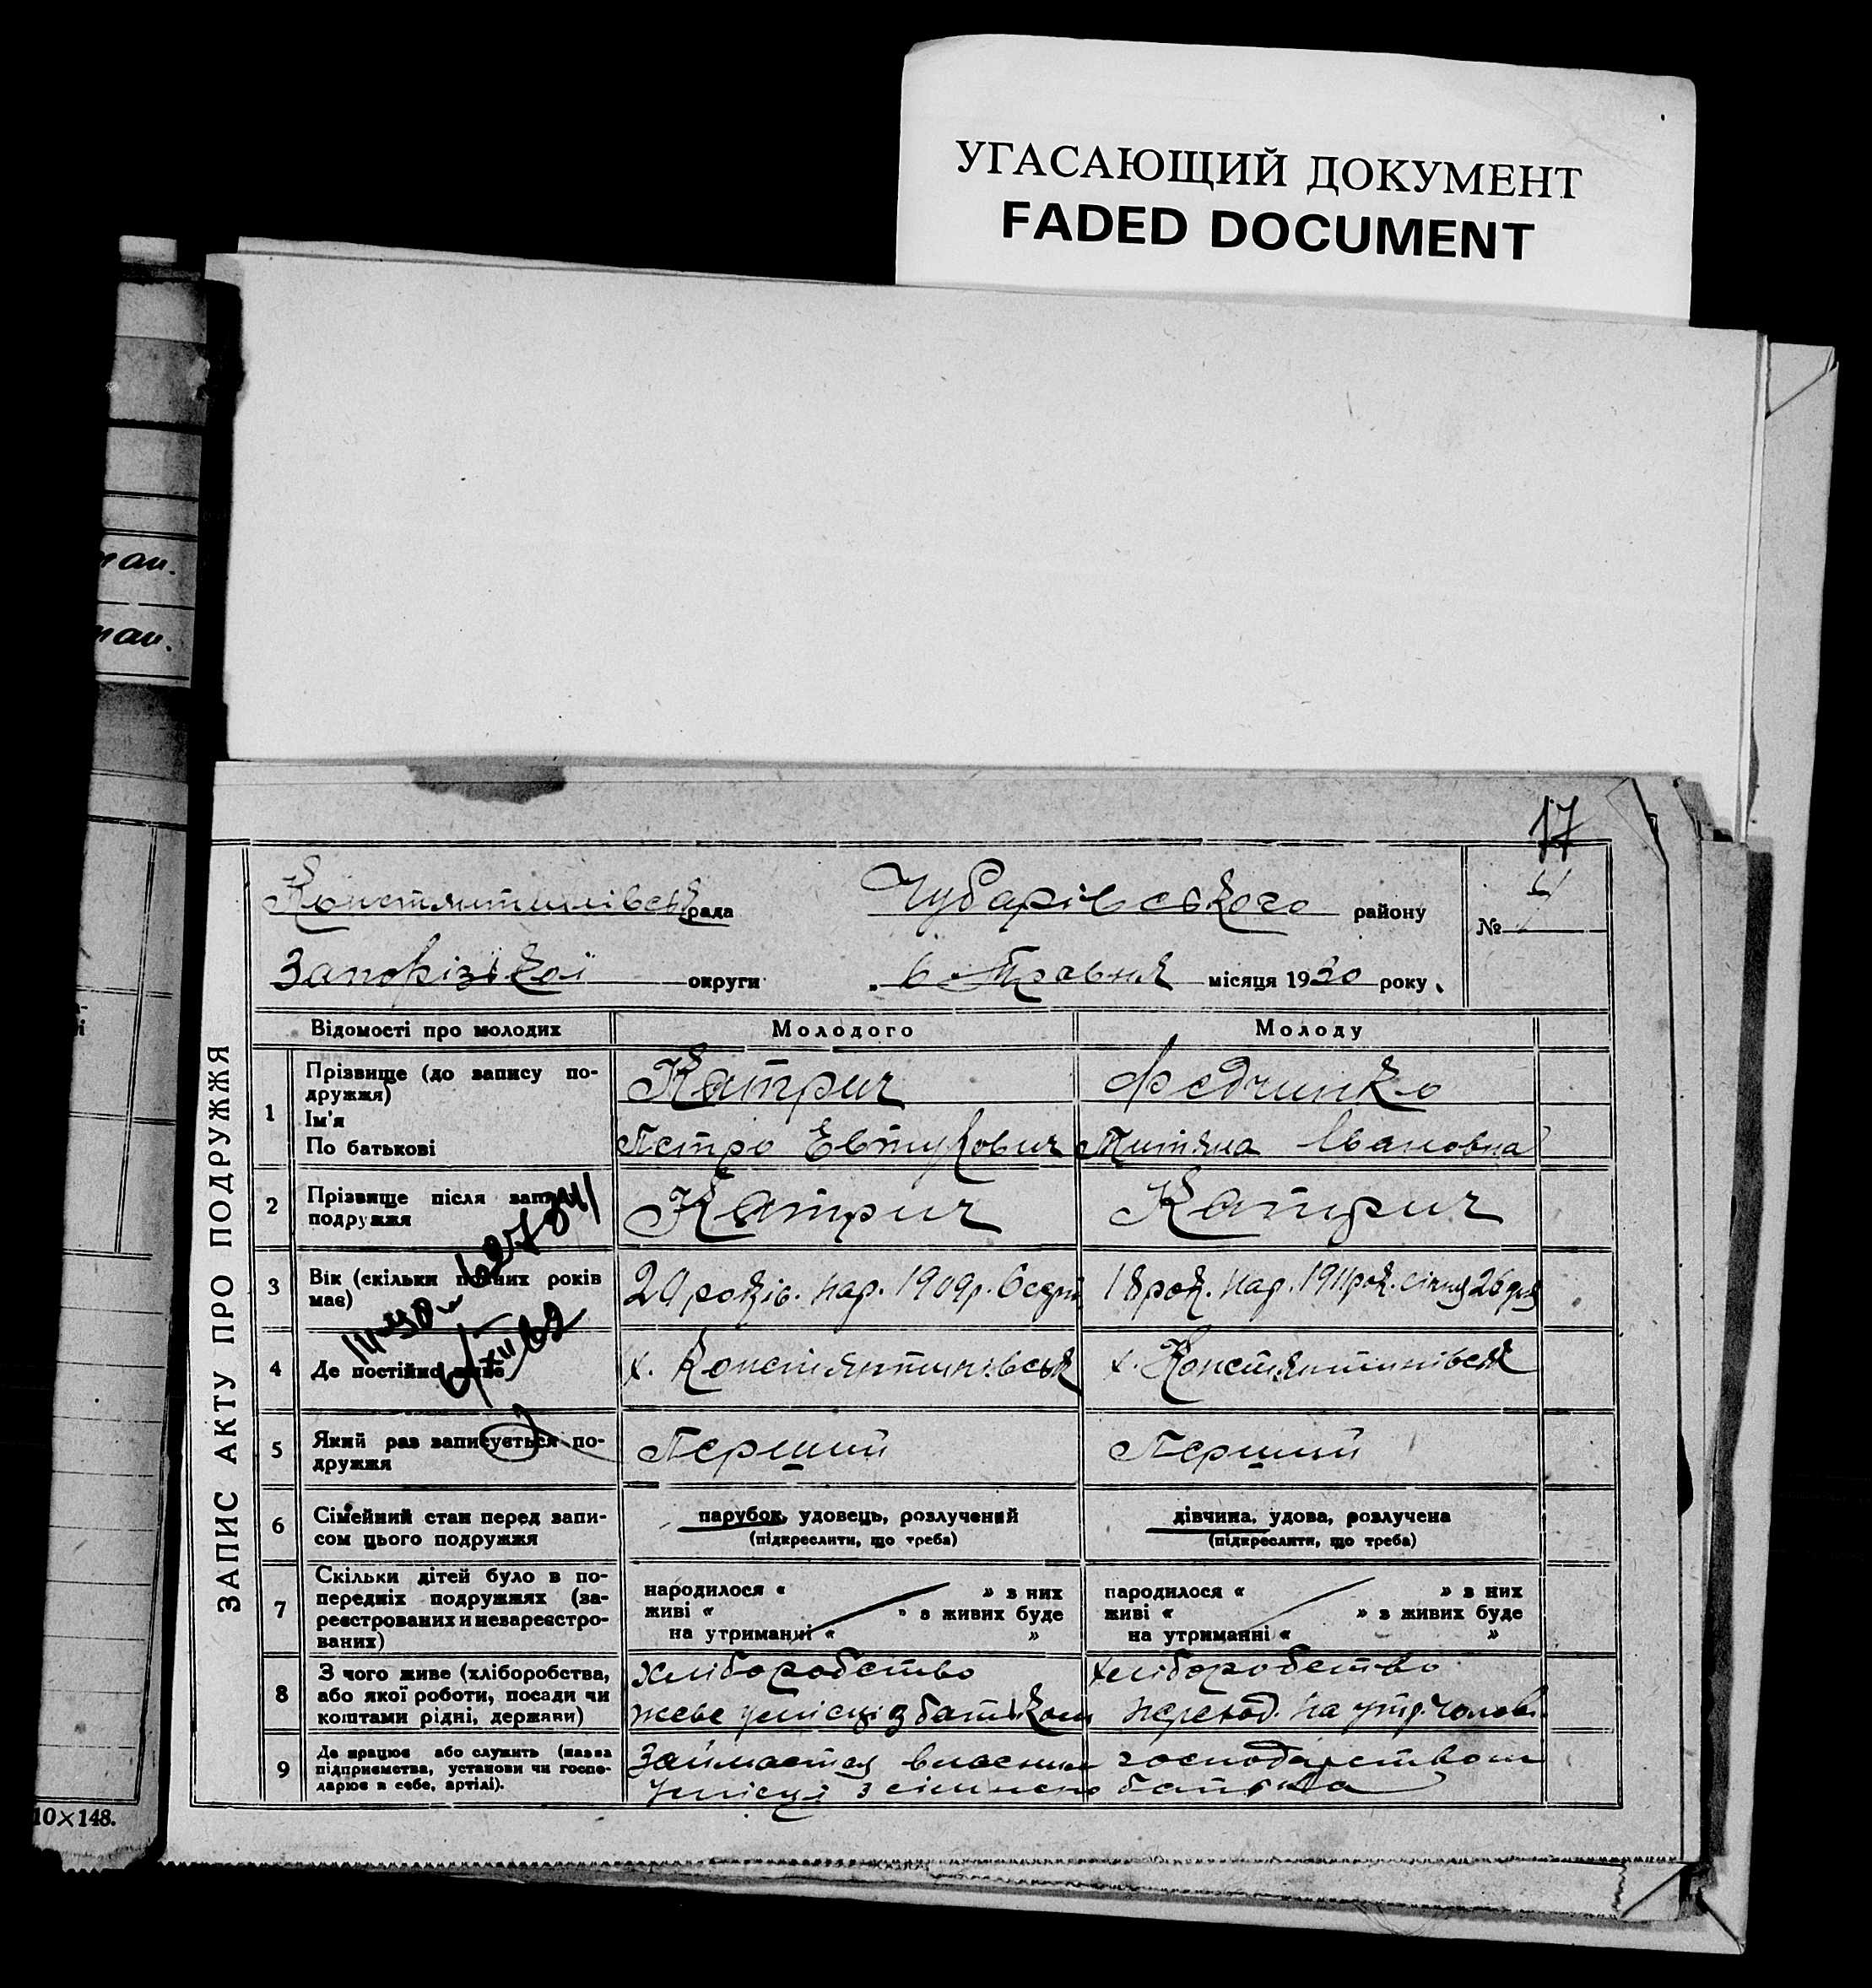 УГАСАЮЩИЙ ДОКУМЕНТ
FADED DOCUMENT
17
Констянтинівськ рада Чубарівського району № 4
Запорізької округи „ 6 Травня місяця 1930 року
ЗАПИС АКТУ ПРО ПОДРУЖЖЯ
Відомості про молодих Молодого Молоду
1 Прізвище (до запису подружжя) Катрич Федчинко
Ім'я
По батькові Петро Івановна
2 Прізвище після запису подружжя Катрич Катрич
3 Вік (скільки повних років має) 20 років. нар. 1909р. 18 рок. нар. 1911 рок. січня 26 дня
4 Де постійно живе х. Констянтинівськ х. Констянтинівськ
5 Який раз записується подружжя Перший Перший
6 Сімейний стан перед записом цього подружжя парубок, удовець, розлучений дівчина, удова, розлучена
(підкреслити, що треба) (підкреслити, що треба)
7 Скільки дітей було в попередніх подружжях (зареєстрованих и незареєстрованих) народилося « » з них народилося « » з них
живі « » з живих буде живі « » з живих буде
на утриманні « » на утриманні « »
8 З чого живе (хліборобства, або якої роботи, посади чи коштами рідні, держави) хліборобство хліборобство
живе умісці з батьком переход. на утр. чолові.
9 Де працює або служить (назва підприємства, установи чи господарює в себе, артілі). Займается власним господарством
умісці з сімнею батька
10×148.